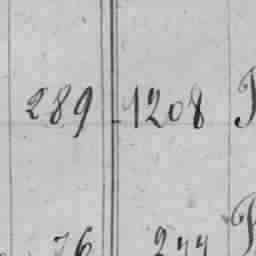 289 1208
76 244